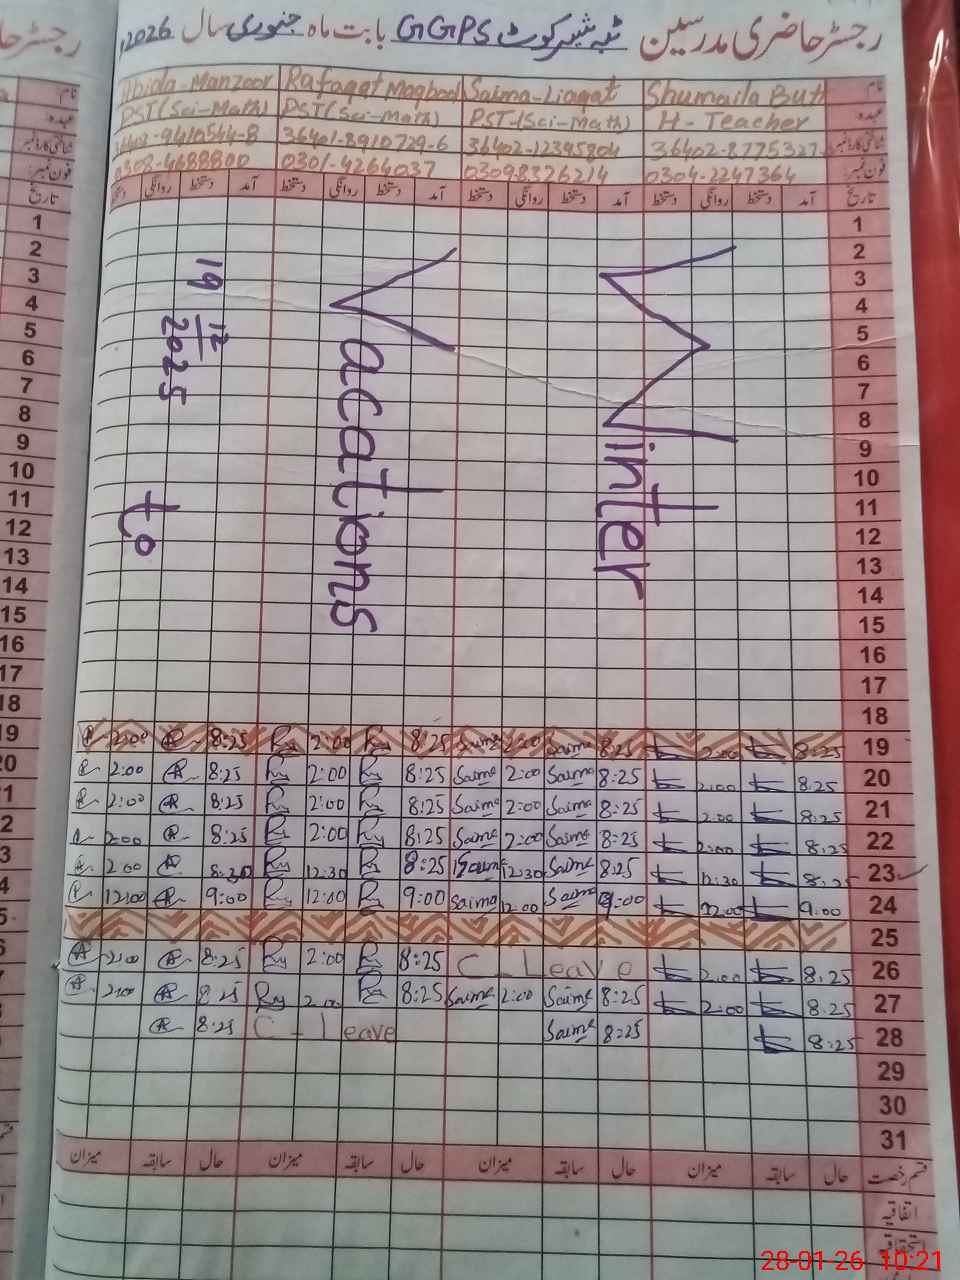 رجسٹر حاضری مدرسین GGPS بابت ماہ جنوری سال 2026ء
نام Shumaila Butt Saima-Liaqat Rafaqat Maqbool Abida-Manzoor
عہدہ: H-Teacher PST-(Sci-Math) PST(Sci-Math) PST(Sci-Math)
شناختی کارڈ نمبر 36402-8775327- 36402-12395804 36401-8910729-6 36402-9410544-8
فون نمبر: 0304-2247364 03098326214 0301-4264037 0308-4688800
تاریخ آمد دستخط روانگی دستخط آمد دستخط روانگی دستخط آمد دستخط روانگی دستخط آمد دستخط روانگی دستخط
1
2
3
4
5
6
7
8
9
10
11
12
13
14
15
16
17
18
Winter
Vacations
19 12 2025
to
19 8:25 2:00 8:25 Saima 2:00 Saima 8:25 2:00 8:25 2:00
20 8.25 2:00 8:25 Saima 2:00 Saima 8:25 2:00 8:25 2:00
21 8:25 2:00 8:25 Saima 2:00 Saima 8:25 2:00 8:25 2:00
22 8:25 2:00 8:25 Saima 2:00 Saima 8:25 2:00 8:25 2:00
23 8:25 12:30 8:25 Saima 12:30 Saima 8:25 12:30 8:30 2:00
24 9:00 12:00 9:00 Saima 12:00 Saima 9:00 12:00 9:00 12:00
25
26 8:25 2:00 C-Leave 8:25 2:00 8:25 2:00
27 8:25 2:00 8:25 Saima 2:00 Saima 8:25 2:00 8:25 2:00
28 8:25 8:25 Saima C-Leave 8:25
29
30
31
قسم رخصت حال سابقہ میزان حال سابقہ میزان حال سابقہ میزان حال سابقہ میزان
اتفاقیہ
28-01-26 10:21